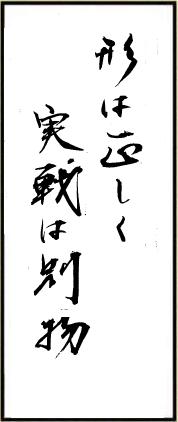 形は正しく
実戦は別物